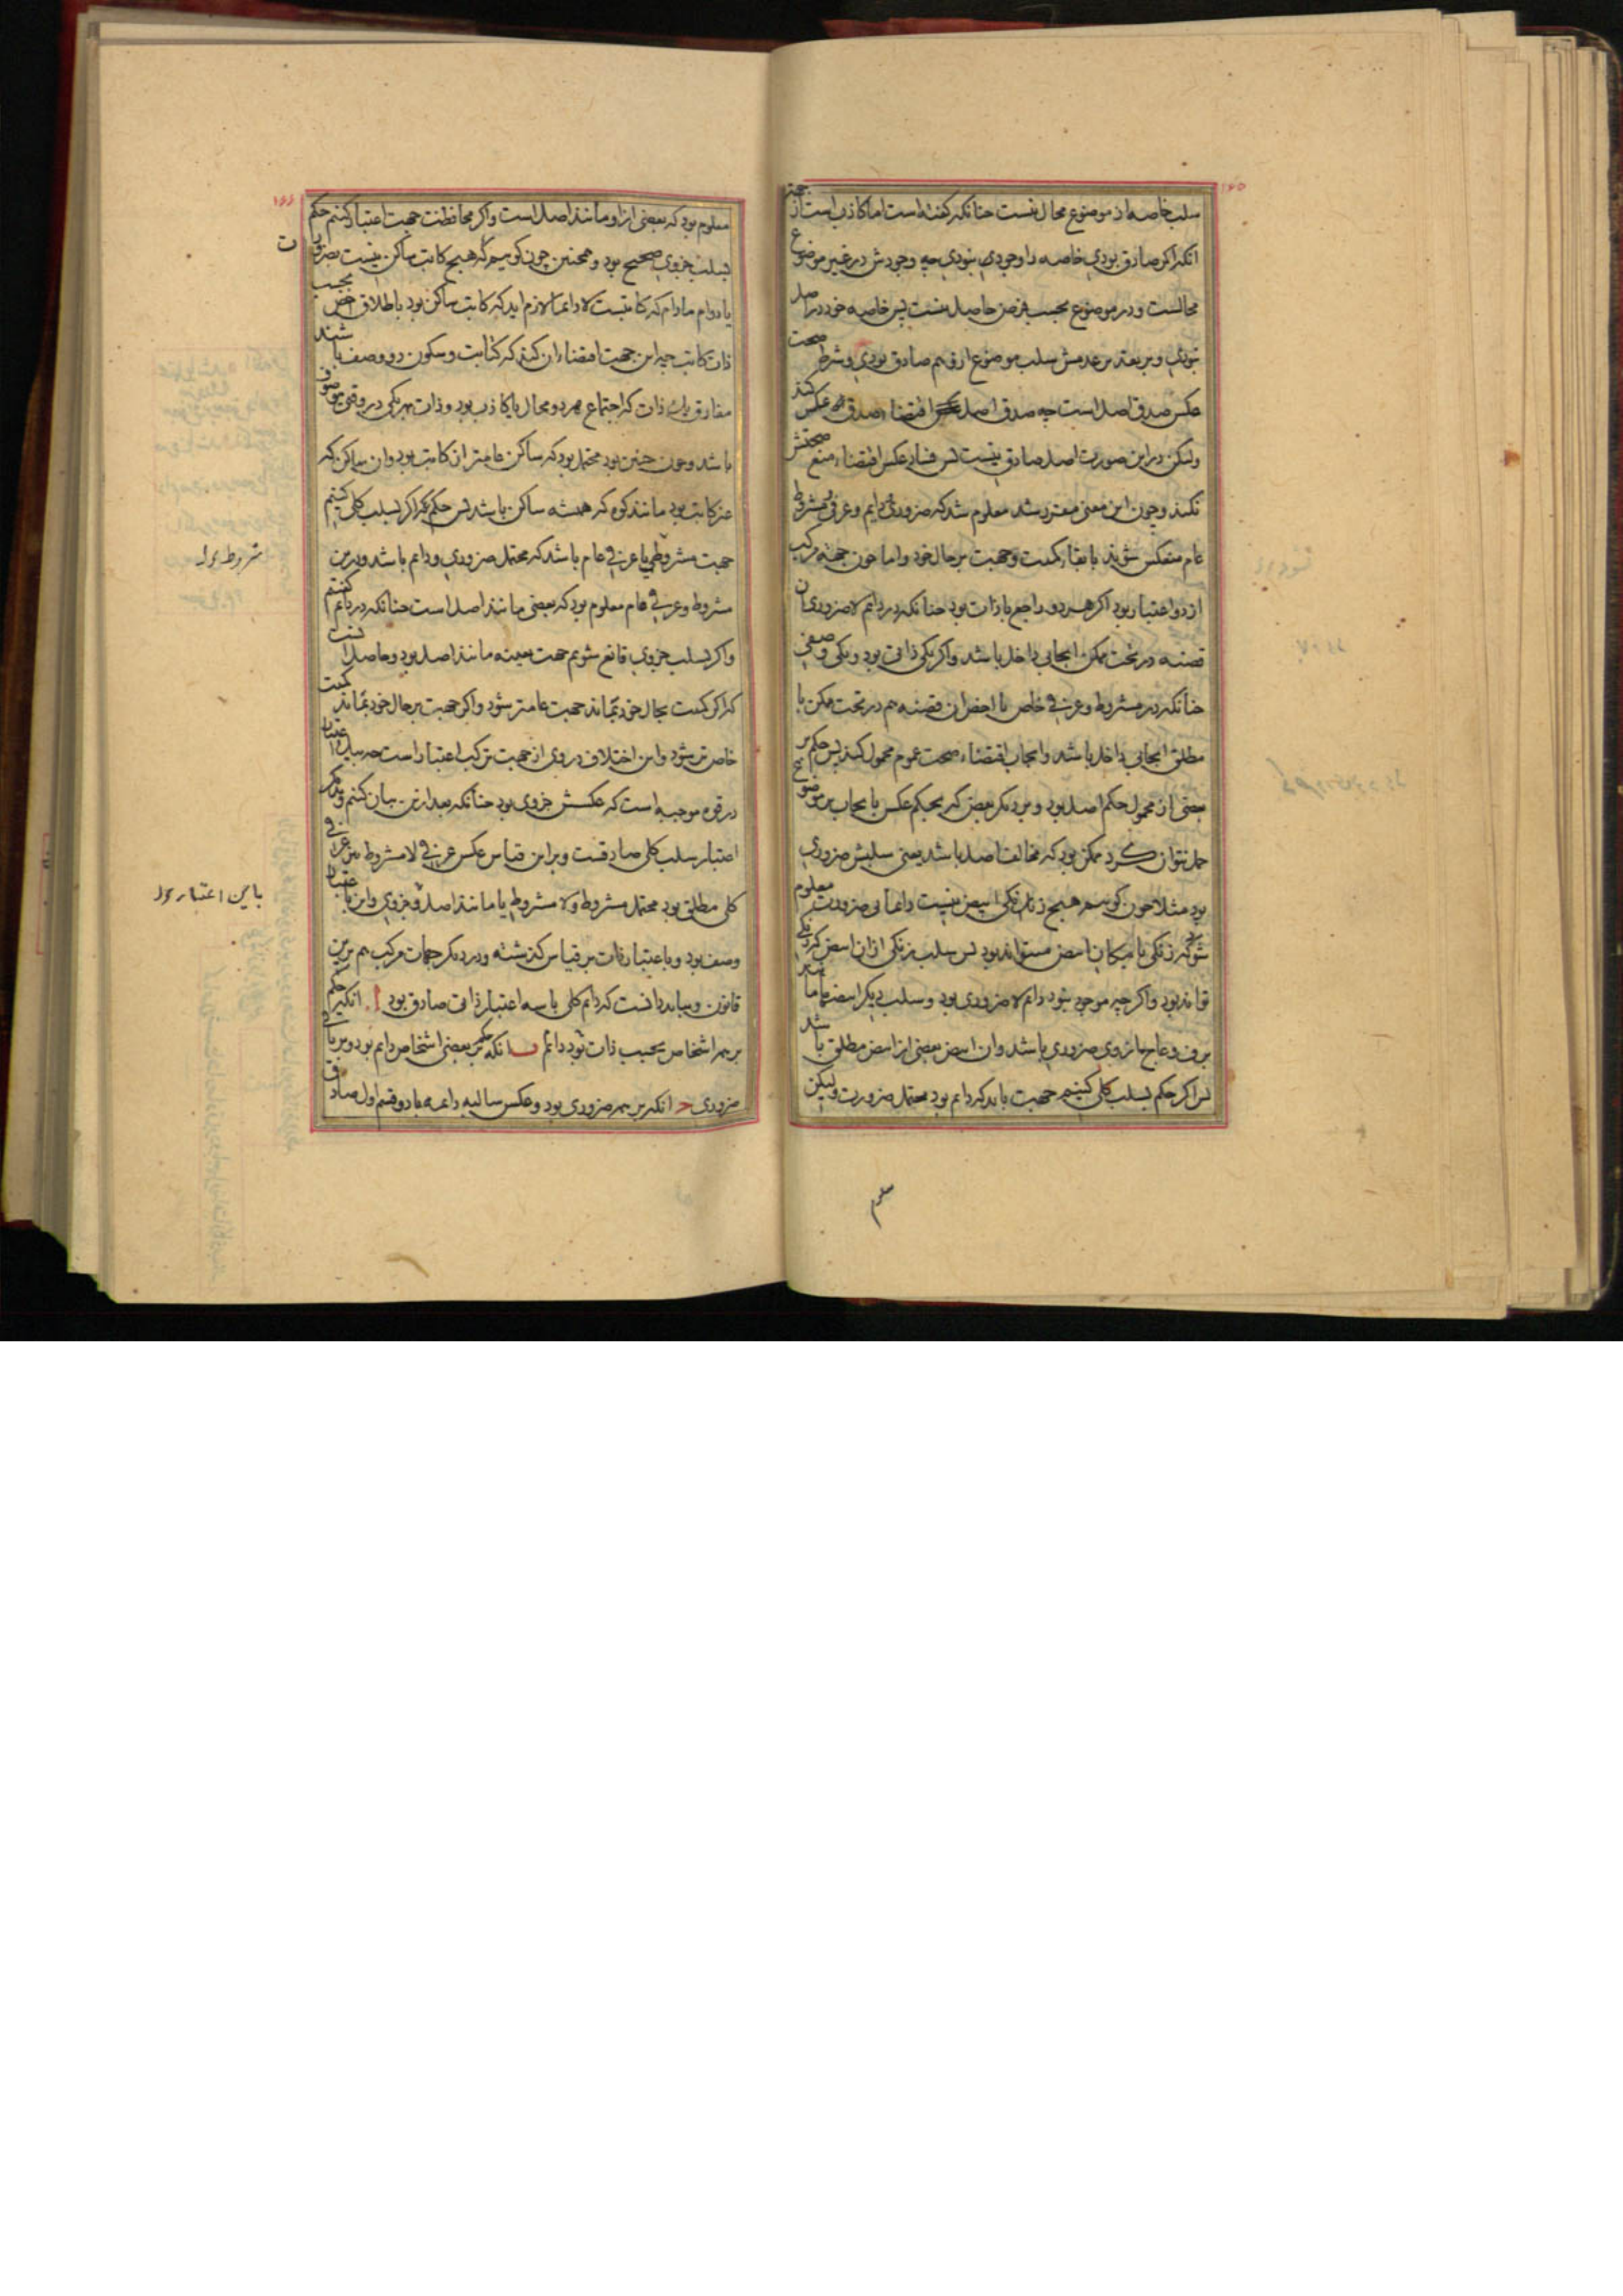 ۱۶۵
سلب خاصه از موضوع محال نیست چنانکه گفته است اما کاذب است از جهته
انکه اگر صادق بودی خاصه را وجودی نبودی چه وجودش در غیر موضوع
محالست و در موضوع بحسب فرض حاصل نیست پس خاصه خود در اصل
نبودی و بر تقدیر عدمش سلب موضوع ازو هم صادق بودی و شرط صحت
عکس صدق اصل است چه صدق اصل اقتضاء صدق عکس کند
ولیکن در این صورت اصل صادق نیست پس فساد عکس اقتضاء منع صحتش
نکند و چون این معنی مقرر شد معلوم شد که ضروری و دایم و عرفی و مشروط
عام منعکس شوند با بقاء کمیت و جهت بر حال خود و اما چون جهة مرکب
از دو اعتبار بود اگر هر دو راجع با ذات بود چنانکه در دایم لاضروری ان
قضیه در تحت ممکن ایجابی داخل باشد و اگر یکی ذاتی بود و یکی وصفی
چنانکه در مشروط و عرفی خاص یا اخص ان قضیه هم در تحت ممکن یا
مطلق ایجابی داخل باشد و ایجاب اقتضاء صحت عموم محمول کند پس حکم بر
بعضی از محمول حکم اصل بود و بر دیگر بعض که بحکم عکس با یجاب بر موضوع
حمل نتوان کرد ممکن بود که مخالف اصل باشد یعنی سلبش ضروری
بود مثلا چون گوییم هیچ زنکی ابیض نیست دائما بی ضرورت معلوم
شود که زنکی بامکان ابیض میتواند بود پس سلب زنکی از ان ابیض که زنکی
تواند بود و اگر چه موجود نبود دایم لا ضروری بود و سلب دیگر ابیضها مانند
برف و عاج از وی ضروری باشد و ان ابیض بعضی از ابیض مطلق باشد
پس اگر حکم بسلب کلی کنیم جهت باید که دایم بود محتمل ضرورت و لیکن
معلوم
۱۶۶
معلوم بود که بعضی از او مانند اصل است و اگر محافظت جهت اعتبار کنیم حکم
بسلب جزوی صحیح بود و همچنین چون گوییم که هیچ کاتب ساکن نیست بضرورت
یا دوام مادام که کاتبست لا دائما لازم اید که کاتب ساکن بود باطلاق اخص بحسب
ذات کاتب چه این جهت اقتضاء ان کند که کتابت و سکون دو وصف باشند
مفارق یک ذات که اجتماع هر دو محال یا کاذب بود و ذات بهر یکی در وقتی موصوف
باشد و چون چنین بود محتمل بود که ساکن عامتر از کاتب بود و ان ساکن که
غیر کاتب بود مانند کوه که همیشه ساکن باشد پس حکم عکس اگر بسلب کلی کنیم
جهت مشروطی یا عرفی عام باشد که محتمل ضروری و دایم باشد و درین
مشروط و عرفی عام معلوم بود که بعضی مانند اصل است چنانکه در دایم گفتیم
و اگر بسلب جزوی قانع شویم جهت بعینه مانند اصل بود و حاصل انست
که اگر کمیت بحال خود بماند جهت عامتر شود و اگر جهت بر حال خود بماند کمیت
خاص تر شود و این اختلاف در وی از جهت ترکب اعتبار است چه سالبه باعتبار
در قوه موجبه است که عکسش جزوی بود چنانکه بعد ازین بیان کنیم و بدیگر
اعتبار سلب کلی صادقست و بر این قیاس عکس عرفی لا مشروط عرفی
کلی مطلق بود محتمل مشروط و لا مشروط یا مانند اصل و جزوی و این باعتبار
وصف بود و باعتبار ذات بر قیاس گذشته و در دیگر جهات مرکب هم برین
قانون و بباید دانست که دایم کلی با سه اعتبار ذاتی صادق بود ا. انکه حکم
بر همه اشخاص بحسب ذات بود دائم ب انکه حکم بر بعضی اشخاص دایم بود و بر باقی
ضروری ج انکه بر همه ضروری بود و عکس سالبه دائمه با دو قسم اول صادق
ت
مشروط بود
باین اعتبار بود